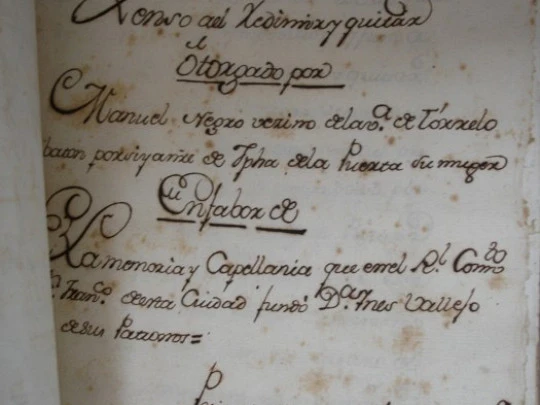 Zenso al Redimir y quitar
Otorgado por
Manuel Negro vezino de la v.ª de Torrelo
baton por si y a nre de Jpha de la Puerta su muger
En fabor de
La memoria y Capellania que en el R.l Comto
Fran.co de esta Ciudad fundó D.ª Ines Vallejo
de sus Patronos=